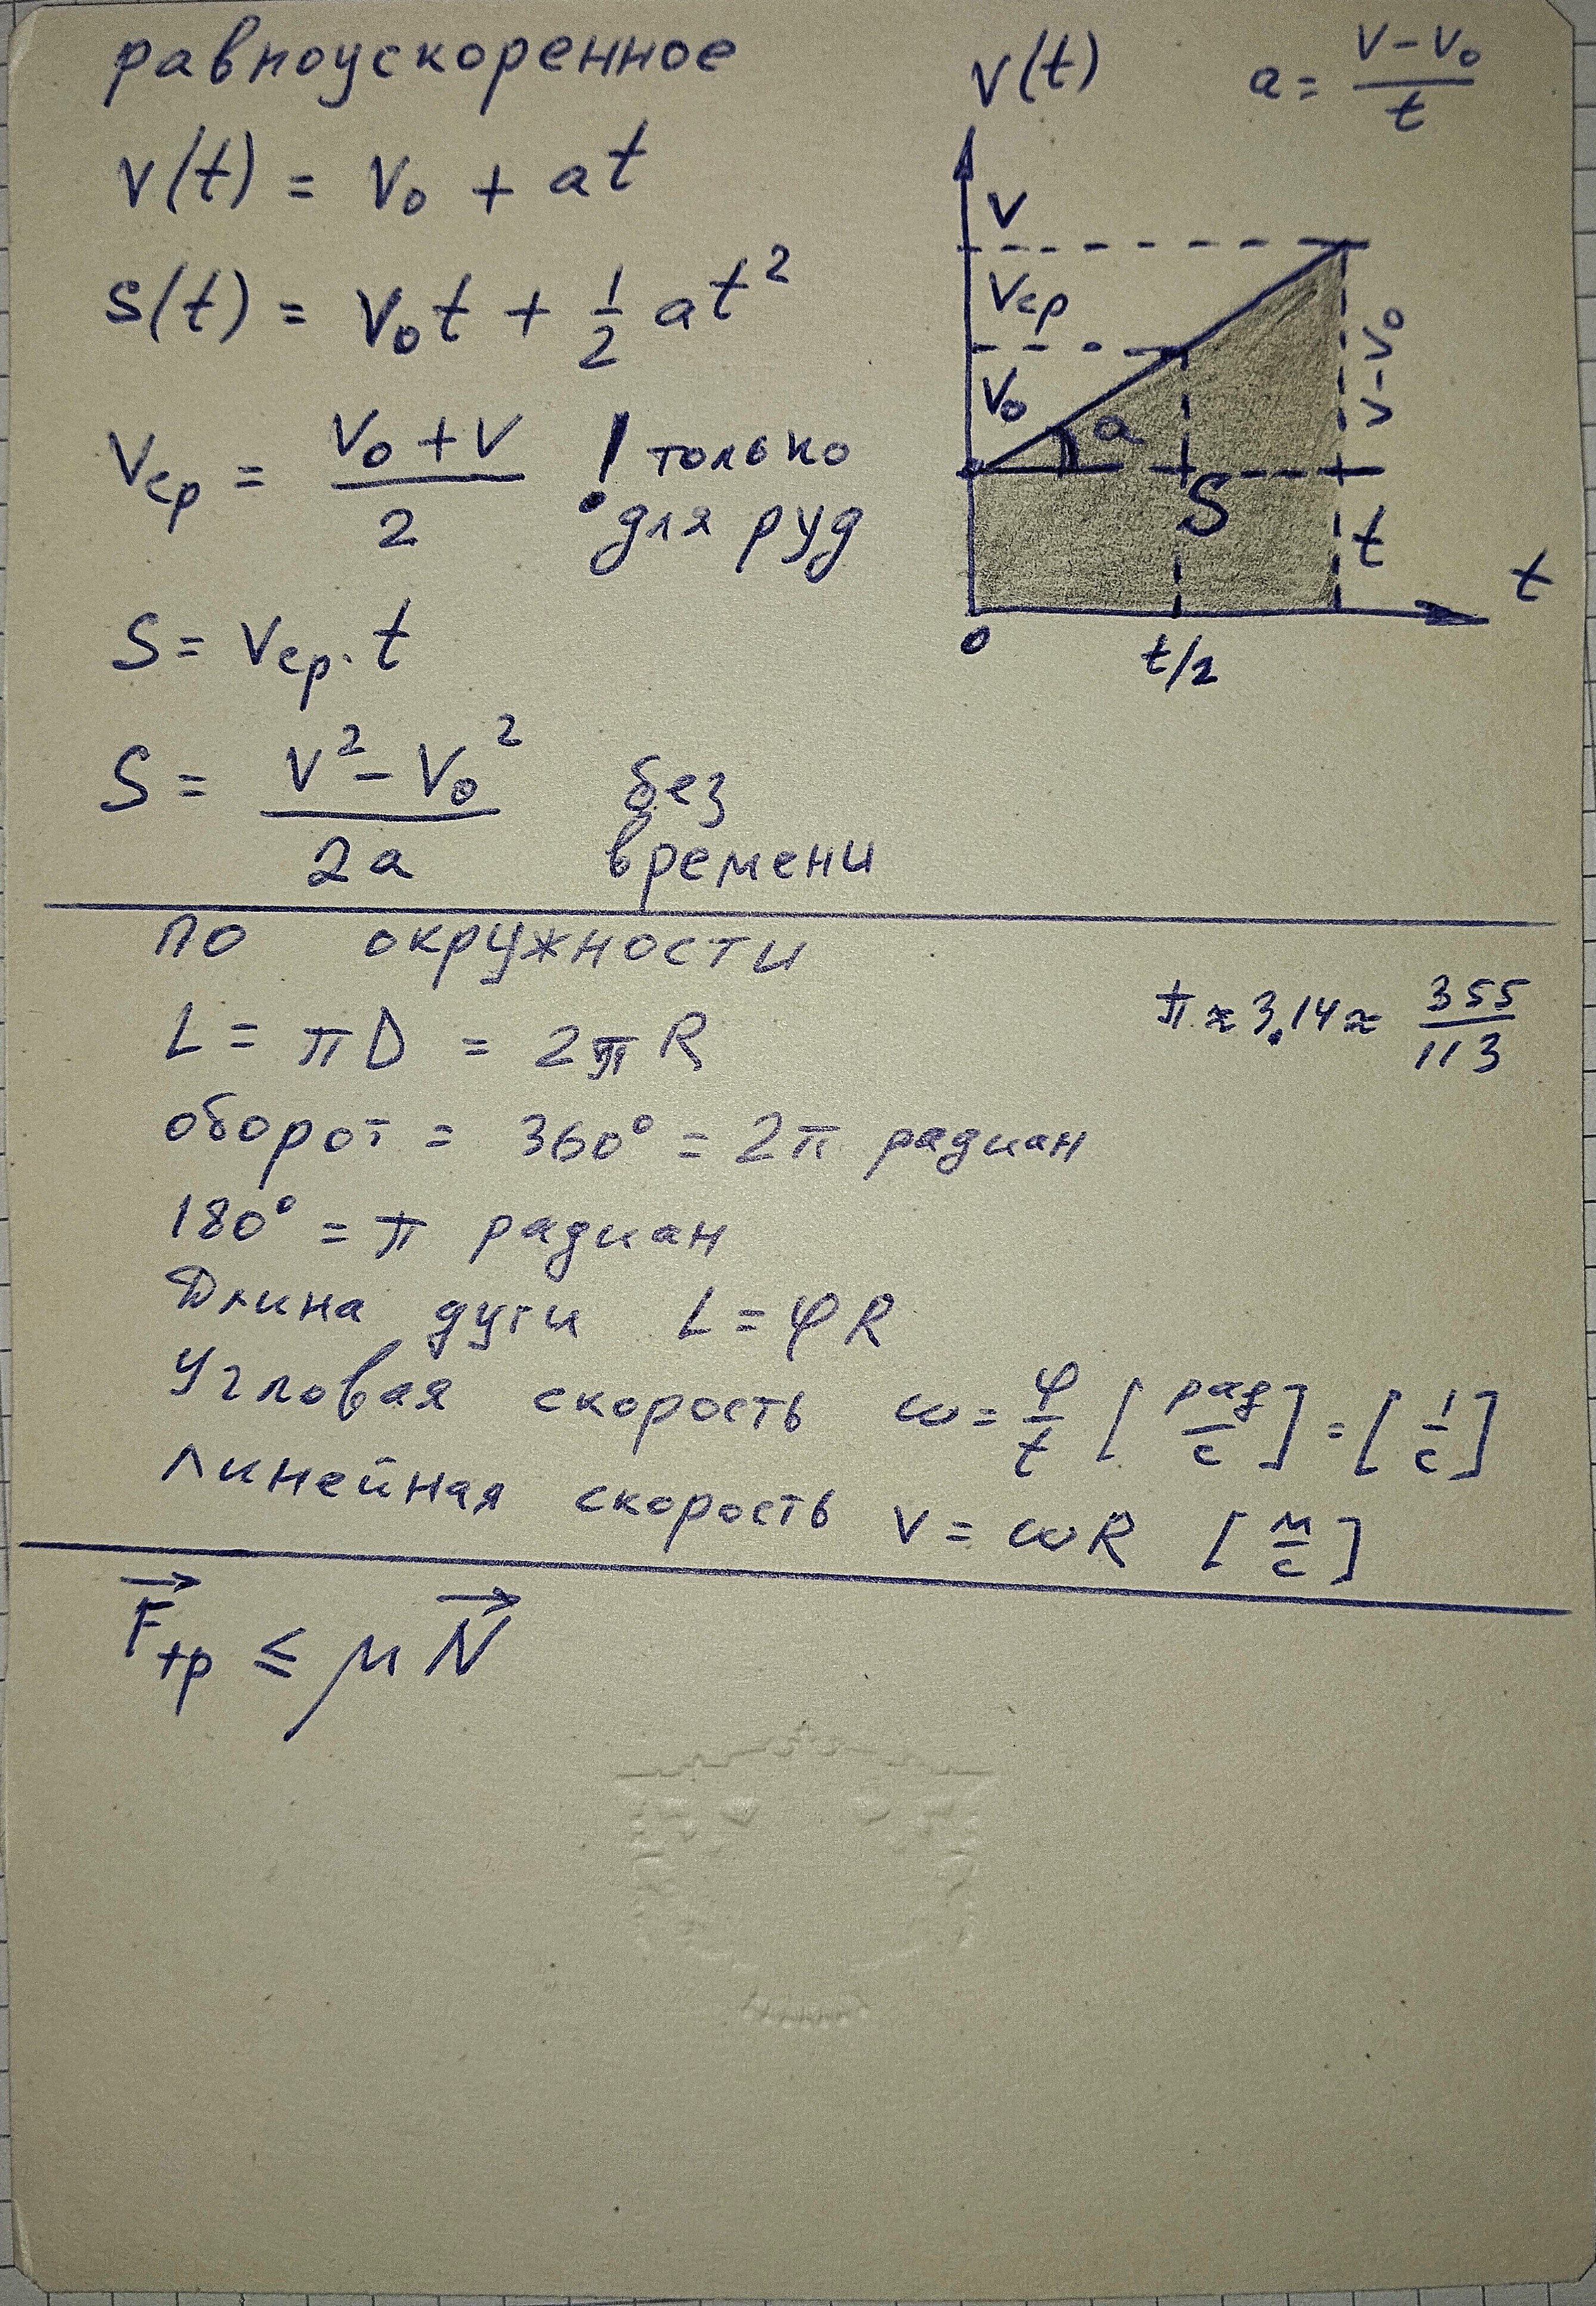 равноускоренное
v(t) = v₀ + at
s(t) = v₀t + 1/2 at²
vср = (v₀ + v)/2 ! только
для руд
S = vср · t
S = (v² - v₀²)/2a без
времени
v(t) a = (v - v₀)/t
v
vср
v₀
a
S
v - v₀
t
t
0
t/2
по окружности
π ≈ 3,14 ≈ 355/113
L = πD = 2πR
оборот = 360° = 2π радиан
180° = π радиан
Длина дуги L = φR
Угловая скорость ω = φ/t [рад/с] = [1/с]
линейная скорость v = ωR [м/с]
F⃗тр ≤ μN⃗